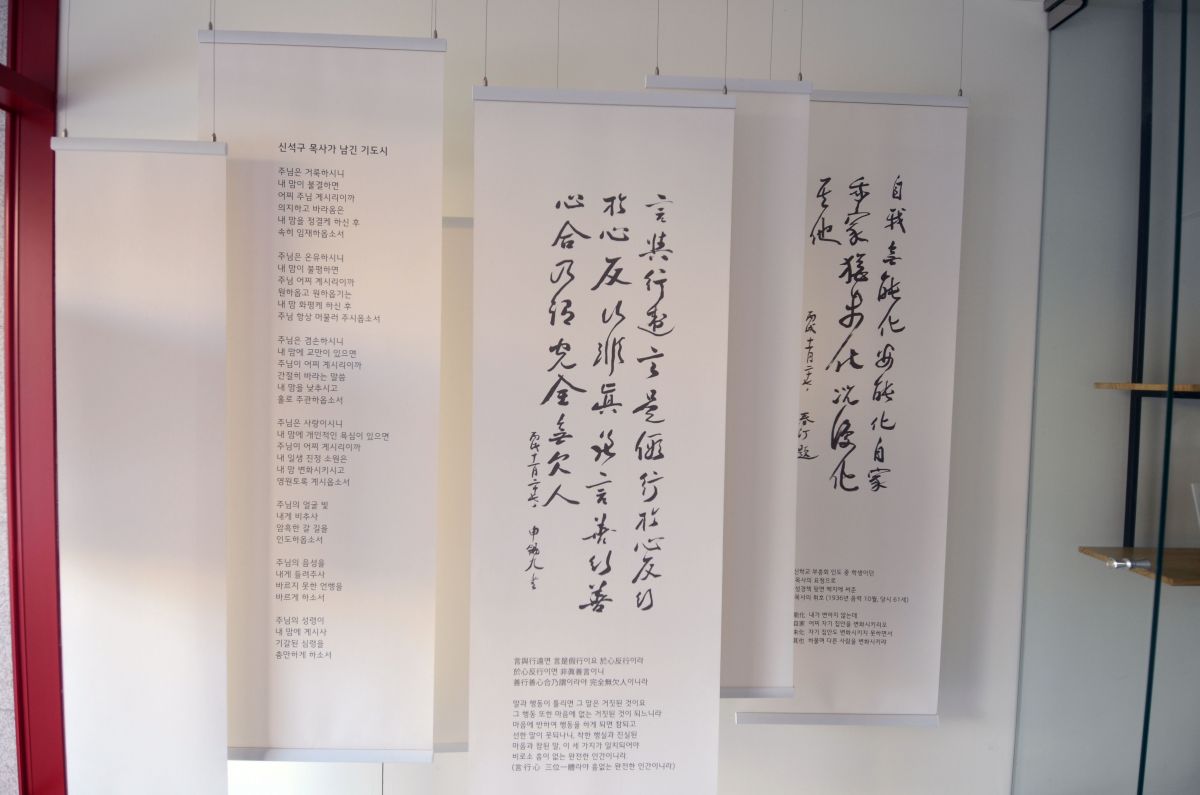 신석구 목사가 남긴 기도시
주님은 거룩하시니
내 맘이 불결하면
어찌 주님 계시리이까
의지하고 바라옴은
내 맘을 정결케 하신 후
속히 임재하옵소서
주님은 온유하시니
내 맘이 불평하면
주님 어찌 계시리이까
원하옵고 원하옵기는
내 맘 화평케 하신 후
주님 항상 머물러 주시옵소서
주님은 겸손하시니
내 맘에 교만이 있으면
주님이 어찌 계시리이까
간절히 바라는 말씀
내 맘을 낮추시고
홀로 주관하옵소서
주님은 사랑이시니
내 맘에 개인적인 욕심이 있으면
주님이 어찌 계시리이까
내 일생 진정 소원은
내 맘 변화시키시고
영원토록 계시옵소서
주님의 얼굴 빛
내게 비추사
암흑한 갈 길을
인도하옵소서
주님의 음성을
내게 들려주사
바르지 못한 언행을
바르게 하소서
주님의 성령이
내 맘에 계시사
기갈된 심령을
충만하게 하소서
言與行違言是假行於心反行
於心反行非眞善言善行善
心合乃謂完全無欠人
丙戌十一月二十七日 申錫九
言與行違면 言是假行이요 於心反行이라
於心反行이면 非眞善言이니
善行善心合乃謂이라야 完全無欠人이니라
말과 행동이 틀리면 그 말은 거짓된 것이요
그 행동 또한 마음에 없는 거짓된 것이 되느니라
마음에 반하여 행동을 하게 되면 참되고
선한 말이 못되나니, 착한 행실과 진실된
마음과 참된 말, 이 세 가지가 일치되어야
비로소 흠이 없는 완전한 인간이니라
(言·行·心 三位一體라야 흠없는 완전한 인간이니라)
自我無能化安能化自家
自家猶未化況復化
其他
丙戌十一月二十七日 春汀 題
신학교 부흥회 인도 중 학생이던
목사의 요청으로
성경책 뒷면 백지에 써준
목사의 휘호 (1936년 음력 10월, 당시 61세)
能化 내가 변하지 않는데
自家 어찌 자기 집안을 변화시키리오
未化 자기 집안도 변화시키지 못하면서
其他 하물며 다른 사람을 변화시키랴